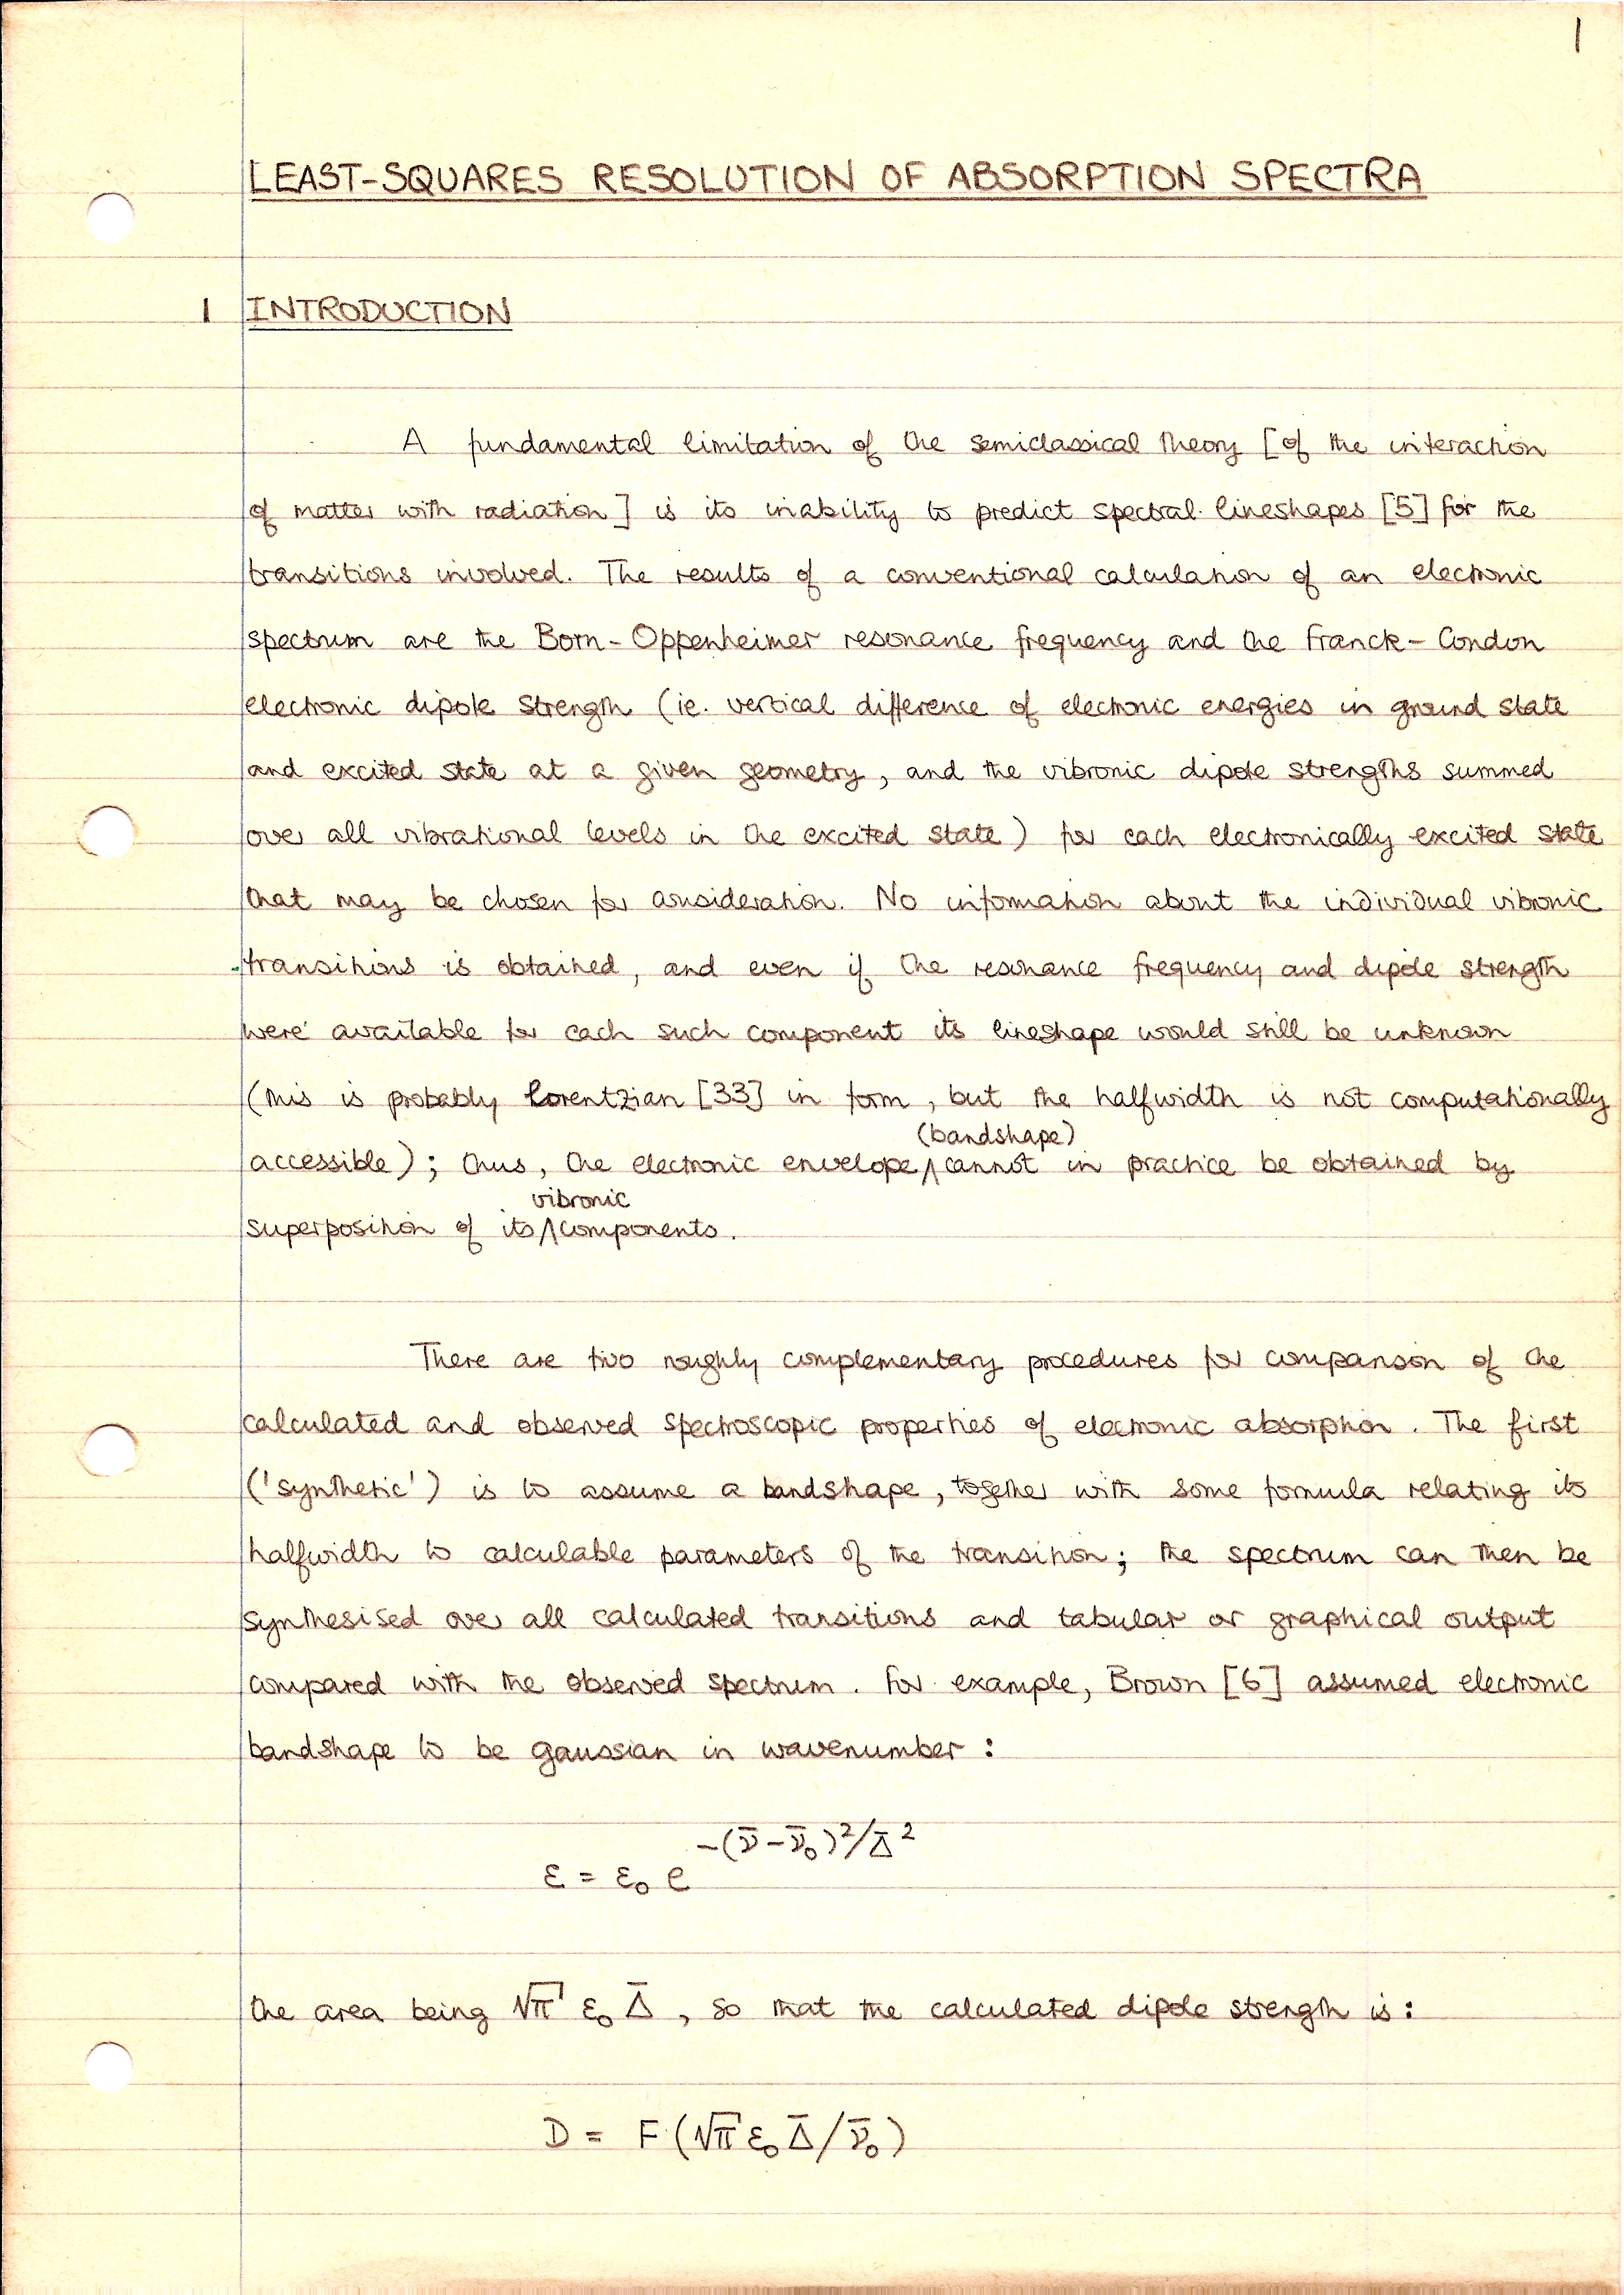 1
LEAST-SQUARES RESOLUTION OF ABSORPTION SPECTRA
1 INTRODUCTION
A fundamental limitation of the semiclassical theory [of the interaction
of matter with radiation] is its inability to predict spectral lineshapes [5] for the
transitions involved. The results of a conventional calculation of an electronic
spectrum are the Born-Oppenheimer resonance frequency and the Franck-Condon
electronic dipole strength (ie. vertical difference of electronic energies in ground state
and excited state at a given geometry, and the vibronic dipole strengths summed
over all vibrational levels in the excited state) for each electronically excited state
that may be chosen for consideration. No information about the individual vibronic
transitions is obtained, and even if the resonance frequency and dipole strength
were available for each such component its lineshape would still be unknown
(this is probably Lorentzian [33] in form, but the halfwidth is not computationally
accessible); thus, the electronic envelope (bandshape) cannot in practice be obtained by
superposition of its vibronic components.
There are two roughly complementary procedures for comparison of the
calculated and observed spectroscopic properties of electronic absorption. The first
('synthetic') is to assume a bandshape, together with some formula relating its
halfwidth to calculable parameters of the transition; the spectrum can then be
synthesised over all calculated transitions and tabular or graphical output
compared with the observed spectrum. For example, Brown [6] assumed electronic
bandshape to be gaussian in wavenumber:
ε = ε₀ e^{-(ν̄-ν̄₀)²/Δ̄²}
the area being √π ε₀ Δ̄, so that the calculated dipole strength is:
D = F(√π ε₀ Δ̄/ν̄₀)